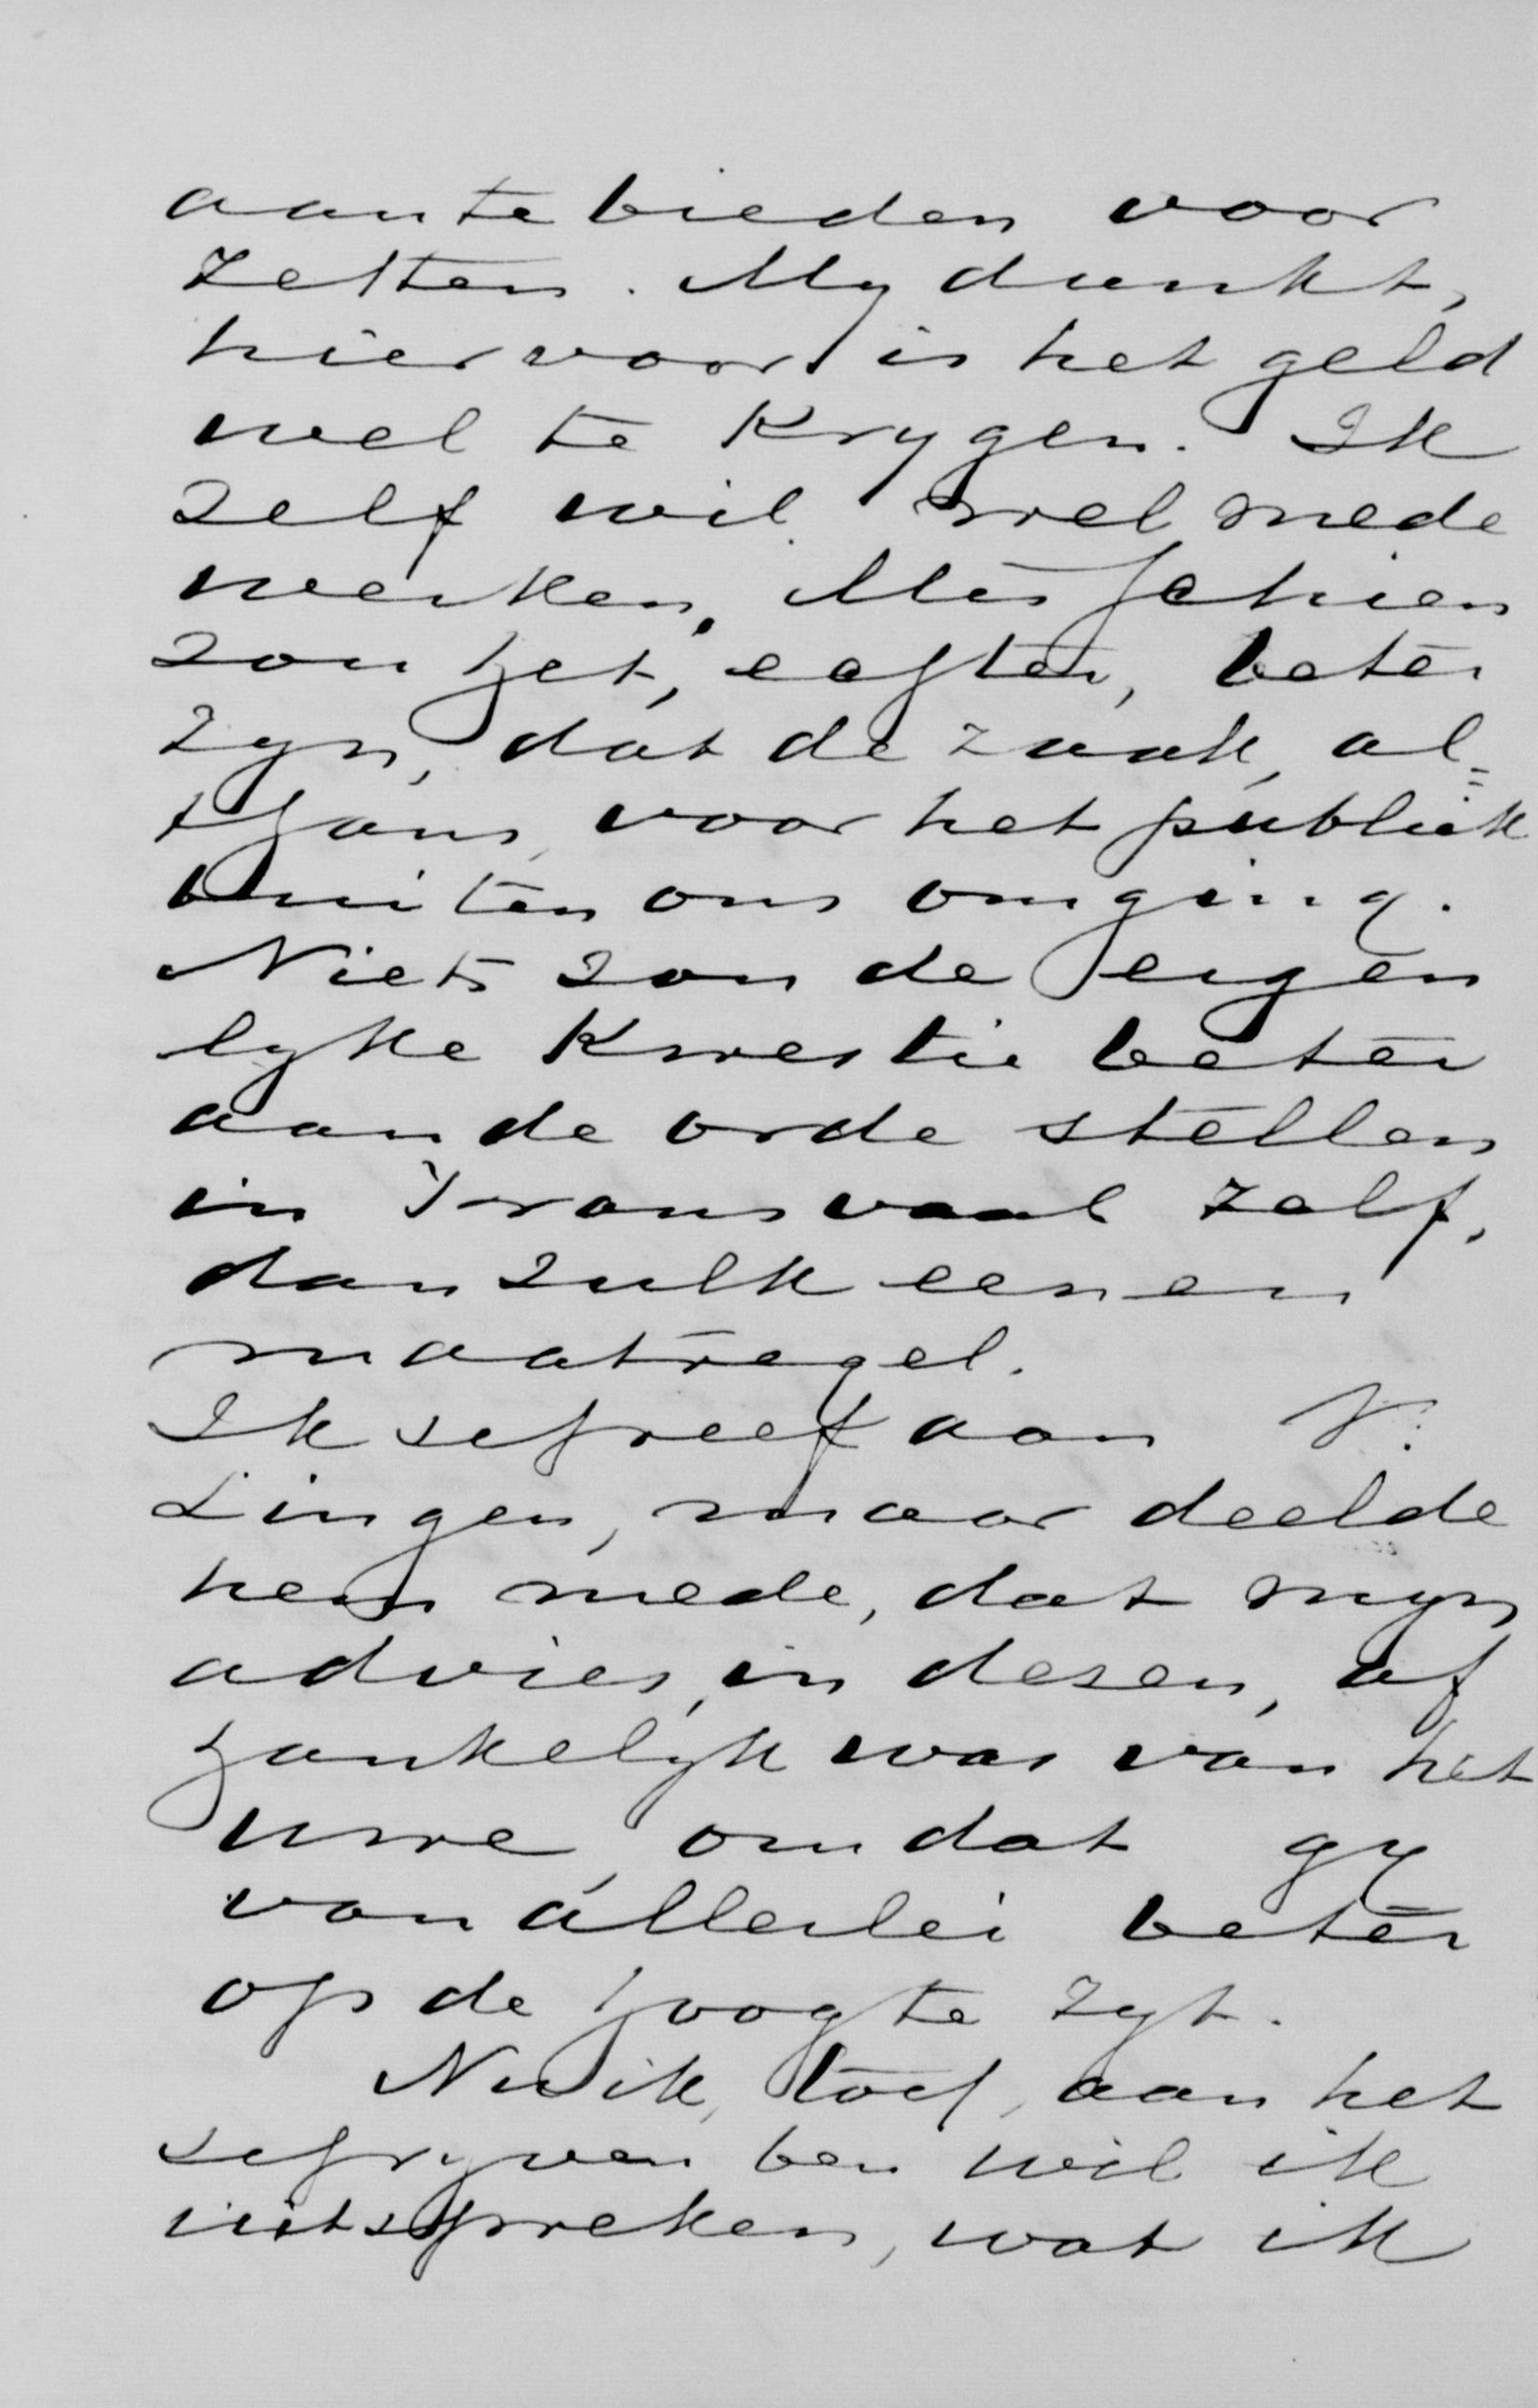 aan te bieden voor
zetten. My dunkt,
hiervoor is het geld
wel te krygen. Ik
zelf wil wel mede
werken. Misschien
zou het, echter, beter
zyn, dat de zaak, al=
thans, voor het publiek
buiten ons omging.
Niets zou de eigen
lyke kwestie beter
aan de orde stellen
in Transvaal zelf,
dan zulk eenen
maatregel.
Ik schreef aan V.
Lingen, maar deelde
hem mede, dat myn
advies, in dezen, af
hankelyk was van het
uwe, omdat gy
van allerlei beter
op de hoogte zyt.
Nu ik, toch, aan het
schryven ben wil ik
uitspreken, wat ik